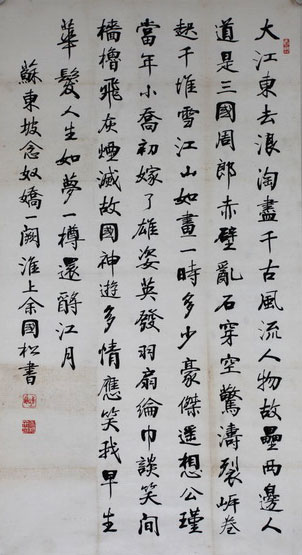 大江東去浪淘盡千古風流人物故壘西邊人
道是三國周郎赤壁亂石穿空驚濤裂岍卷
起千堆雪江山如畫一時多少豪傑遥想公瑾
當年小喬初嫁了雄姿英發羽扇綸巾談笑間
檣櫓飛灰煙滅故國神遊多情應笑我早生
華髮人生如夢一樽還酹江月
蘇東坡念奴嬌一闕淮上余國松書